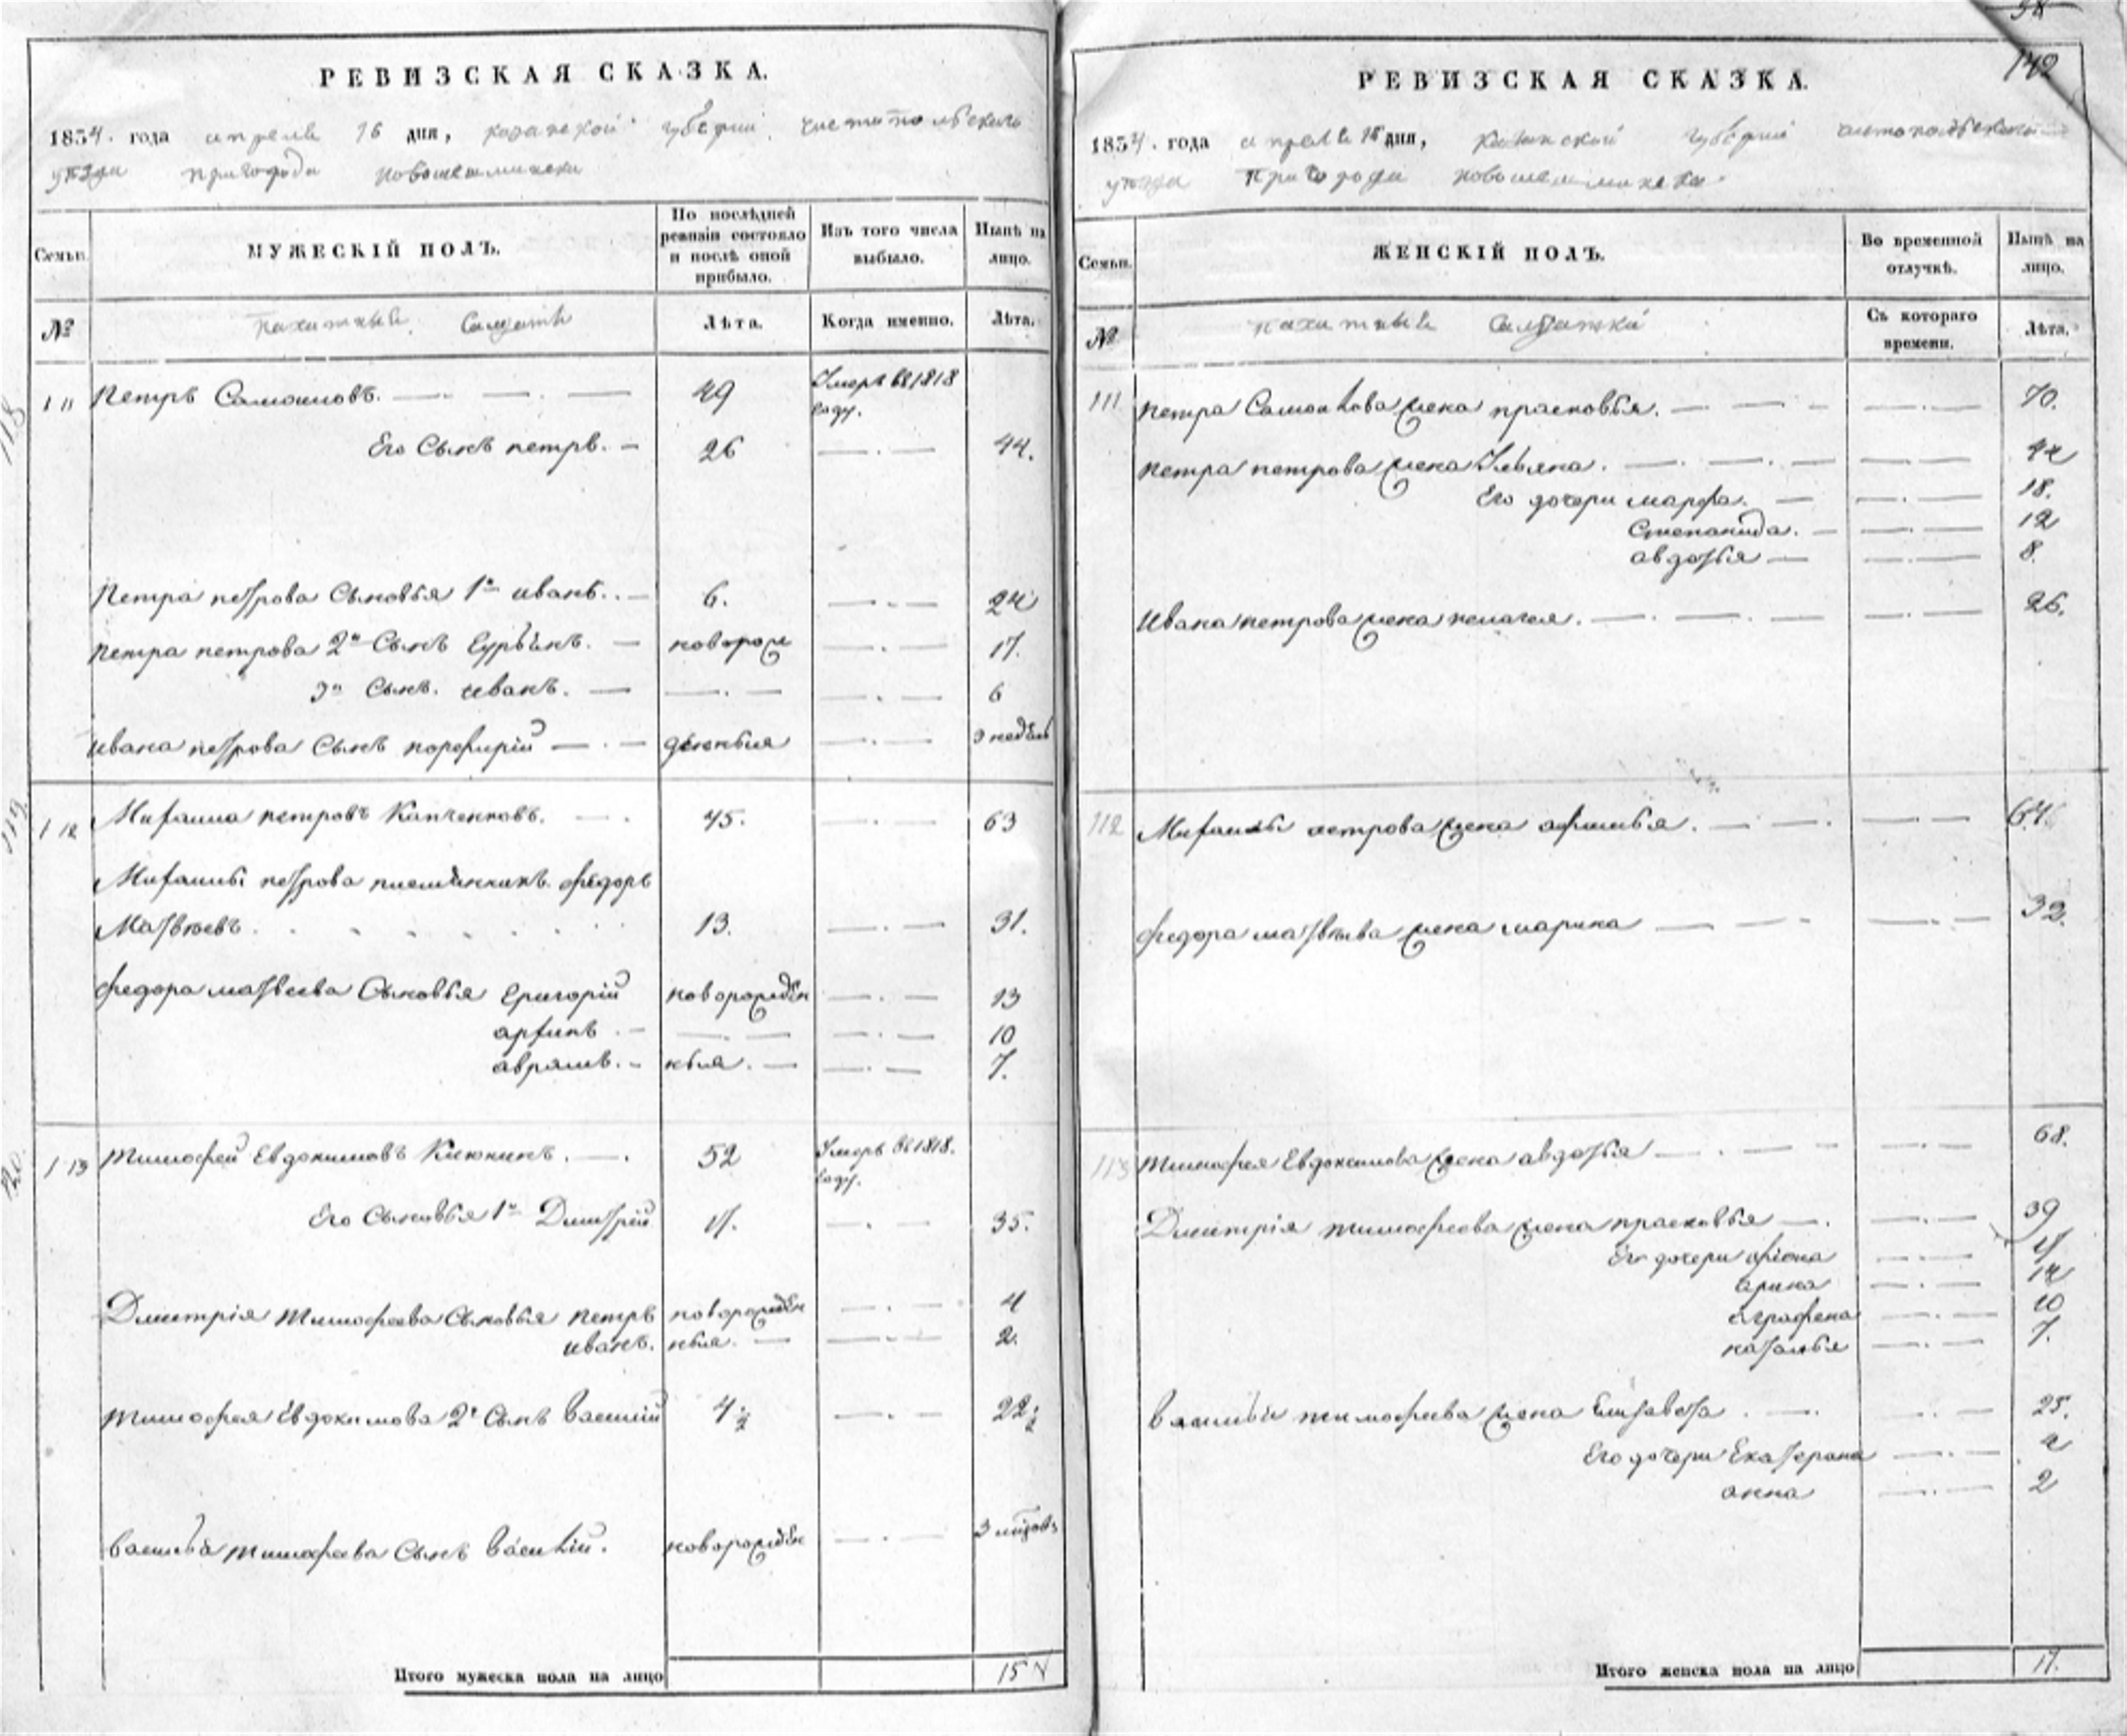 РЕВИЗСКАЯ СКАЗКА.
1834. года апреля 16 дня, казанской губернии чистопольскаго
уѣзда пригорода новошешминска
Семьи.
МУЖЕСКІЙ ПОЛЪ.
По послѣдней ревизіи состояло и послѣ оной прибыло.
Изъ того числа выбыло.
Нынѣ на лицо.
№
пахатные Салдаты
Лѣта.
Когда именно.
Лѣта.
118
111 Петръ Самоиловъ. 49 Умеръ въ 1818 году.
Его Сынъ петръ. 26 44.
Петра петрова Сыновья 1й иванъ. 6. 24
петра петрова 2й Сынъ Гурьянъ. новорож 17.
3й Сынъ. иванъ. 6
ивана петрова Сынъ порфирій 3 недѣль
119
112 Михаила петровъ 45. 63
Михаилы петрова племянникъ федоръ
Матвѣевъ. 13. 31.
федора матвеева Сыновья Григорій новорожден 13
архипъ. 10
аврамъ. ныя. 7.
120.
113 тимофей Евдокимовъ Клюкинъ. 52 Умеръ въ 1818. году.
Его Сыновья 1й Дмитрій 17. 35.
Дмитрія тимофеева Сыновья петръ новорожден 4
иванъ. ныя. 2.
тимофея Евдокимова 2й Сынъ василій 4 1/2 22 1/2
василья тимофеева Сынъ василій. новорожден 3
Итого мужеска пола на лицо 15
142
РЕВИЗСКАЯ СКАЗКА.
1834. года апреля 16 дня, казанской губерніи чистопольскаго
уѣзда пригорода новошешминска
Семьи.
ЖЕНСКІЙ ПОЛЪ.
Во временной отлучкѣ.
Нынѣ на лицо.
№
пахатные Салдатки
Съ котораго времени.
Лѣта.
111 петра Самоилова жена прасковья. 70.
петра петрова жена Ульяна. 42
Его дочери марфа. 18.
Степанида. 12
авдотья 8.
ивана петрова жена пелагея. 26.
112 Михаилы петрова жена афимья. 64
федора матвѣева жена марина 32.
113 тимофея Евдокимова жена авдотья 68.
Дмитрія тимофеева жена прасковья 39
Его дочери фіона 17
арина 12
аграфена 10
наталья 7.
василья тимофеева жена Елизавета 25.
Его дочери Екатерина 4
анна 2
Итого женска пола на лицо 17.